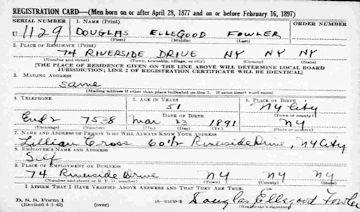 REGISTRATION CARD—(Men born on or after April 28, 1877 and on or before February 16, 1897)
SERIAL NUMBER 1. NAME (Print) ORDER NUMBER
U 1129 DOUGLAS ELLEGOOD FOWLER
(First) (Middle) (Last)
2. PLACE OF RESIDENCE (Print)
74 RIVERSIDE DRIVE NY NY NY
(Number and street) (Town, township, village, or city) (County) (State)
[THE PLACE OF RESIDENCE GIVEN ON THE LINE ABOVE WILL DETERMINE LOCAL BOARD
JURISDICTION; LINE 2 OF REGISTRATION CERTIFICATE WILL BE IDENTICAL]
3. MAILING ADDRESS
same
(Mailing address if other than place indicated on line 2. If same insert word same)
4. TELEPHONE 5. AGE IN YEARS 6. PLACE OF BIRTH
51 NY City
DATE OF BIRTH
7538 Mar 23 1891 NY
(Exchange) (Number) (Mo.) (Day) (Yr.) (State or country)
7. NAME AND ADDRESS OF PERSON WHO WILL ALWAYS KNOW YOUR ADDRESS
Lillian Cross Riverside Drive, NY City
8. EMPLOYER'S NAME AND ADDRESS
Self
9. PLACE OF EMPLOYMENT OR BUSINESS
74 Riverside Drive NY NY
(Number and street or R. F. D. number) (Town) (County) (State)
I AFFIRM THAT I HAVE VERIFIED ABOVE ANSWERS AND THAT THEY ARE TRUE.
D. S. S. Form 1
(Revised 4-1-42) (over) Douglas Ellegood Fowler
(Registrant's signature)